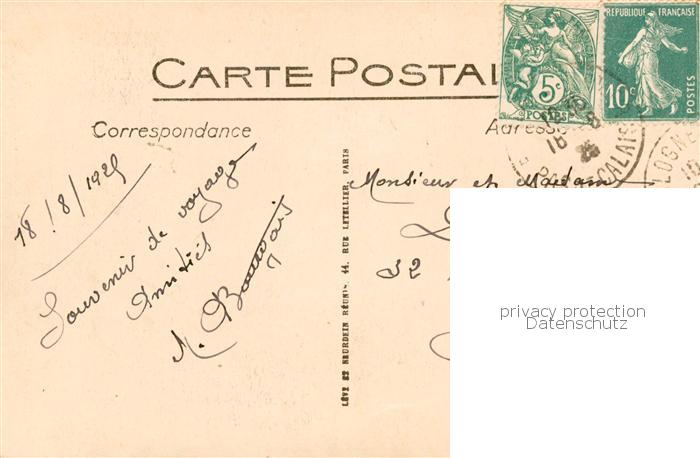 CARTE POSTAL
Correspondance
Adresse
RÉPUBLIQUE FRANÇAISE
5c
POSTES
10c
POSTES
CALAIS
18/8/1925
Souvenir de voyage
Amitiés
M.
LÉVY ET NEURDEIN RÉUNIS, 44, RUE LETELLIER, PARIS
Monsieur et Madame
32
privacy protection
Datenschutz